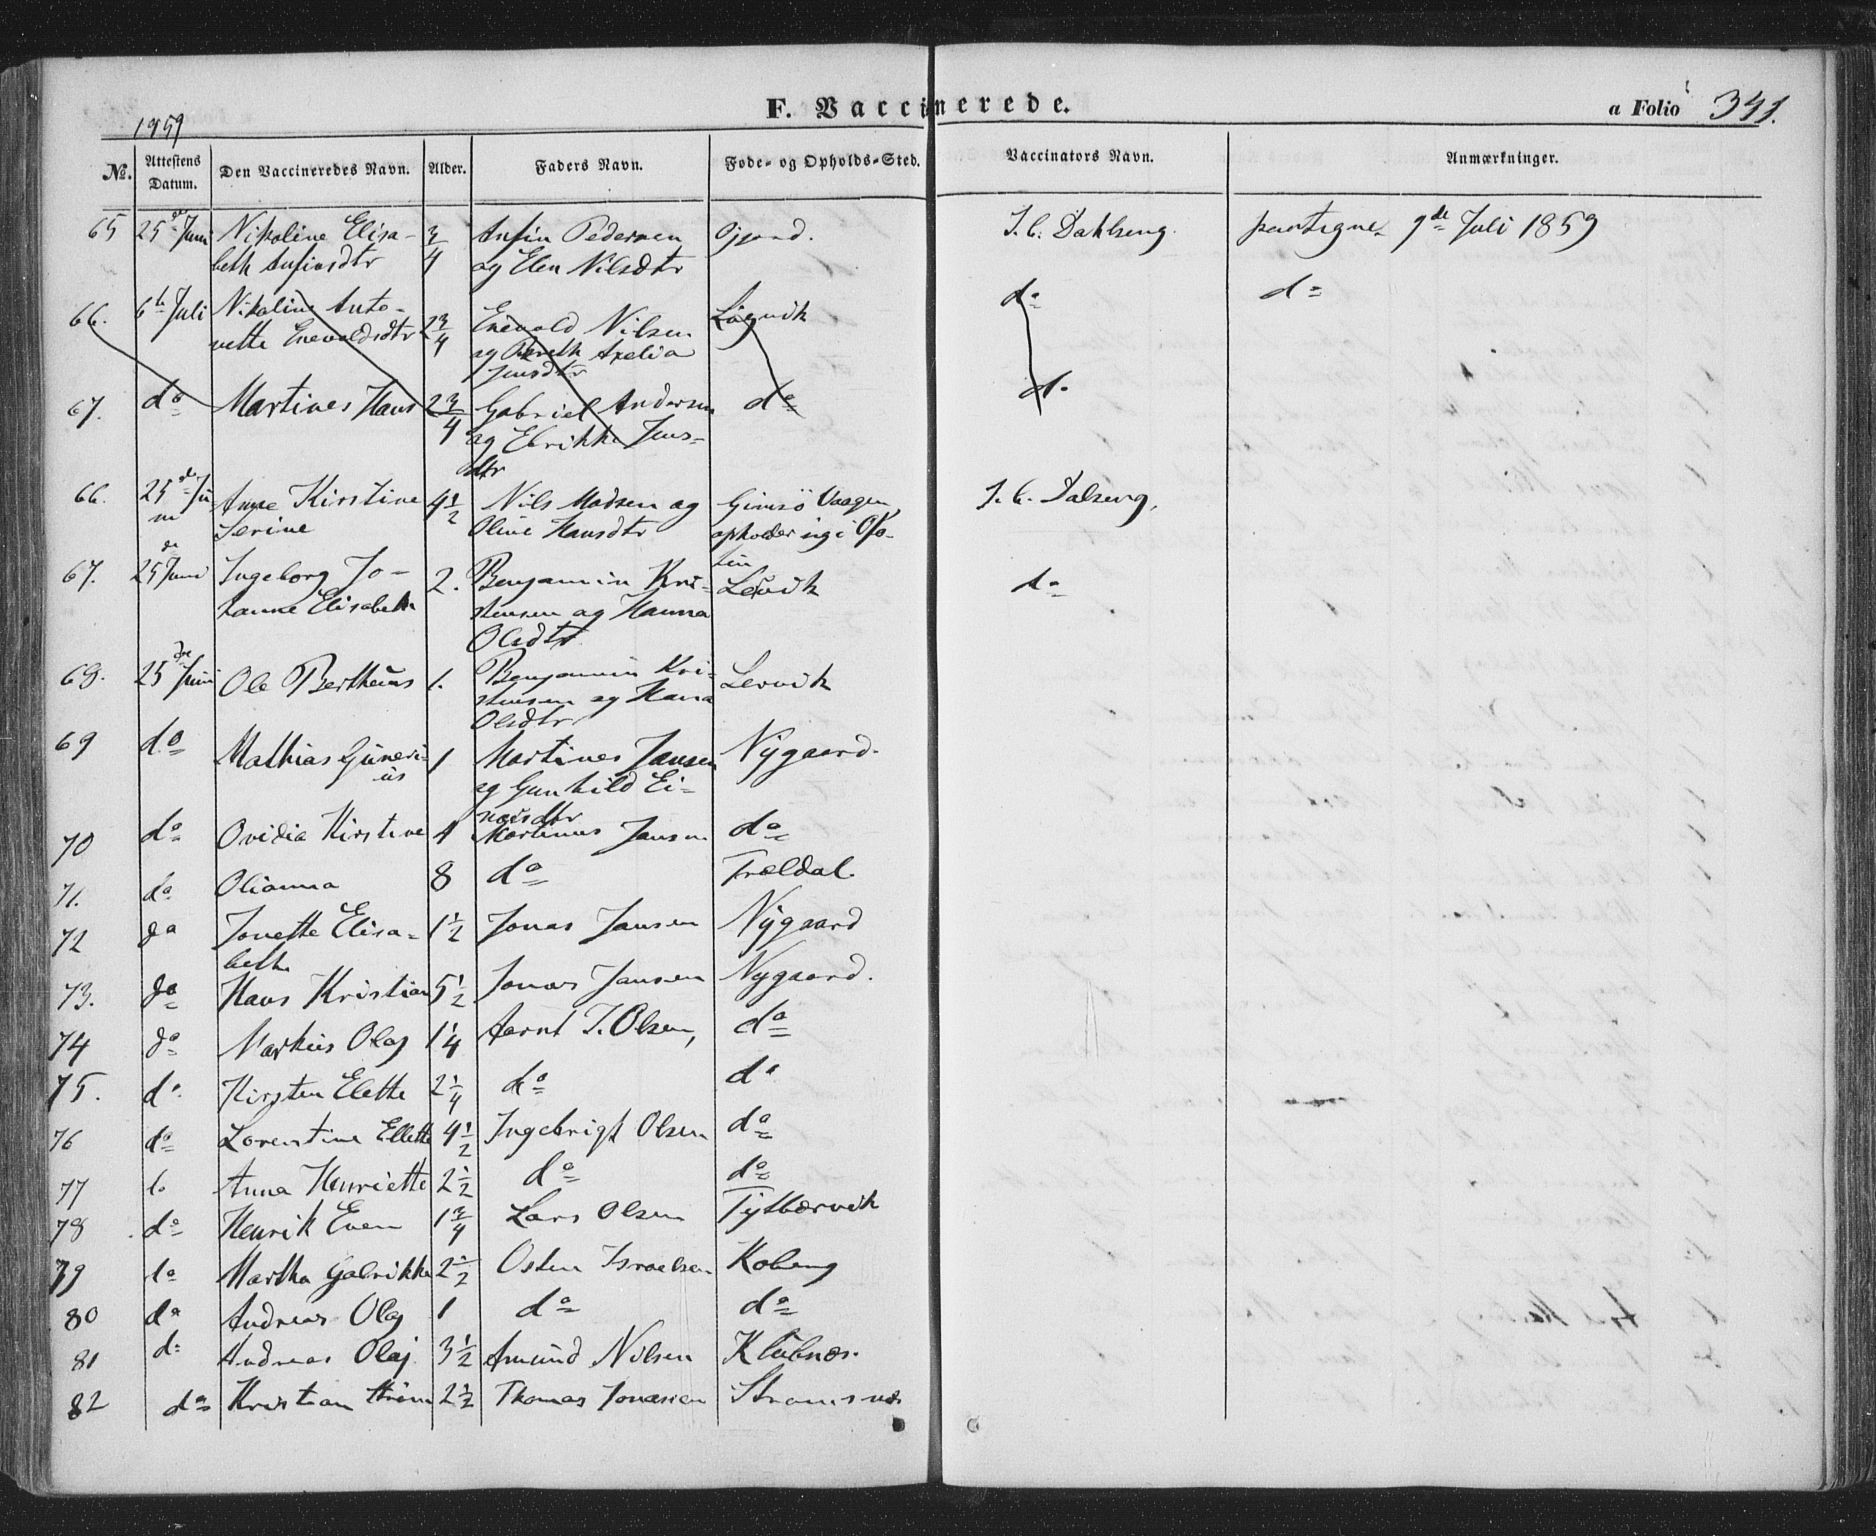 F. Vaccinerede.
a Folio 341.
1859
No. Attestens Datum. Den Vaccineredes Navn. Alder. Faders Navn. Fode- og Opholds-Sted. Vaccinators Navn. Anmærkninger.
65 25de Juni Nikoline Elisa- 3/4 Anfin Pedersen Ojord. J. C. Dahlseng 9de Juli 1859
beth Anfinsdtr og Elen Nilsdtr
66. 6te Juli Nikoline Anto- 2 3/4 Enevold Nilsen Løgvik do do
nette Enevoldsdtr og Axelia
Jensdtr
67. do Martines Hans 2 3/4 Gabriel Andersen do do
og Elrikke Jens-
dtr
66. 25de Ju Anne Kirstine 4 1/2 Nils Madsen og Gimsø Vaagen, J. C. Dalseng,
ni Serine Oline Hansdtr opholder sig i Ofo-
ten
67. 25de Juni Ingeborg Jo- 2. Benjamin Kri- Lervik do
hanne Elisabeth stensen og Hanna
Olsdtr
68. 25de Juni Ole Bertheus 1. Benjamin Kri- Lervik
stensen og Hana
Olsdtr
69 do Mathias Guneri- 1 Martines Jansen Nygaard.
us og Gunhild Ei-
narsdtr
70 do Ovidia Kirstine 4 Martinus Jansen do
71. do Olianna 8 do Trældal.
72 do Jonette Elisa- 1 1/2 Jonas Jansen Nygaard
beth
73. do Hans Kristian 5 1/2 Jonas Jansen Nygaard.
74 do Markus Olaj 1 1/4 Aarnt J. Olsen, do
75. do Kirsten Elette 2 1/4 do do
76 do Lorentine Ellette 4 1/2 Ingebrigt Olsen do
77 do Anna Henriette 2 1/2 do do
78 do Henrik Even 1 3/4 Lars Olsen Tyttbærvik
79 do Martha Galrikke 2 1/2 Osten Israelsen Kobeng
80 do Andreas Olaj 1 do do
81 do Andreas Olaj 3 1/2 Amund Nilsen Klubnæs.
82 do Kristian 2 1/2 Thomas Jonassen Stromsnæs